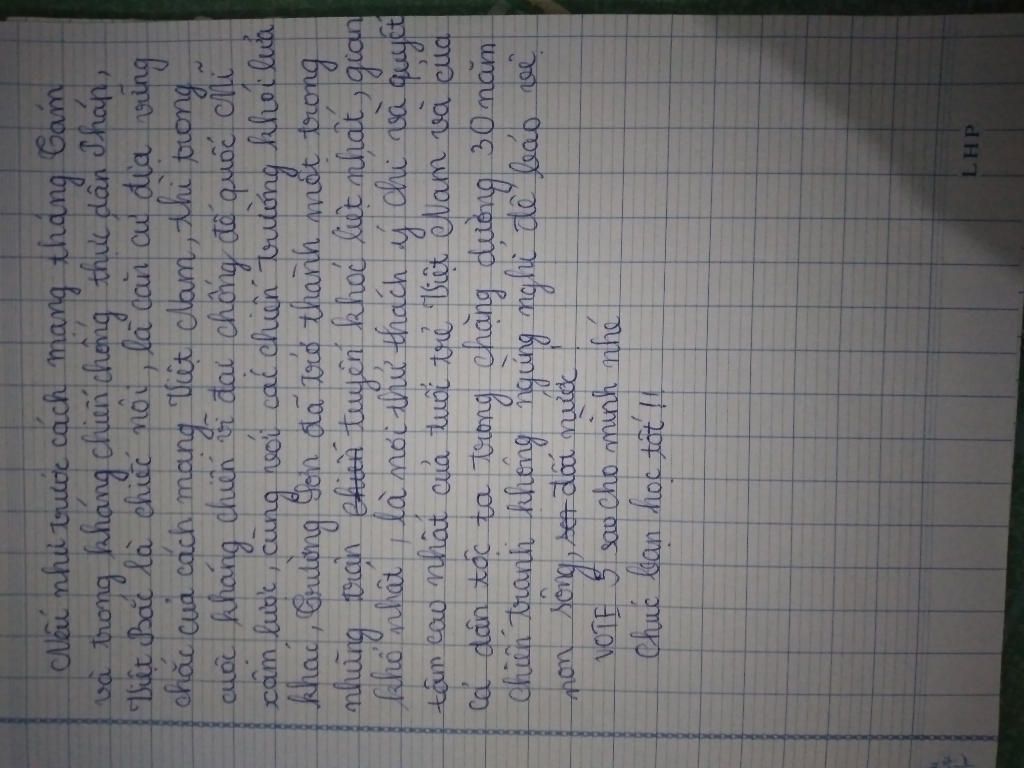 Nếu như trước cách mạng tháng Tám
và trong kháng chiến chống thực dân Pháp,
Việt Bắc là chiếc nôi, là căn cứ địa vững
chắc của cách mạng Việt Nam, thì trong
cuộc kháng chiến vĩ đại chống đế quốc Mĩ
xâm lược, cùng với các chiến trường khói lửa
khác, Trường Sơn đã trở thành một trong
những trận tuyến khốc liệt nhất, gian
khổ nhất, là nơi thử thách ý chí và quyết
tâm cao nhất của tuổi trẻ Việt Nam và của
cả dân tộc ta trong chặng đường 30 năm
chiến tranh không ngừng nghỉ để bảo vệ
non sông, đất nước
VOTE 5 sao cho mình nhé
Chúc bạn học tốt!!
LHP